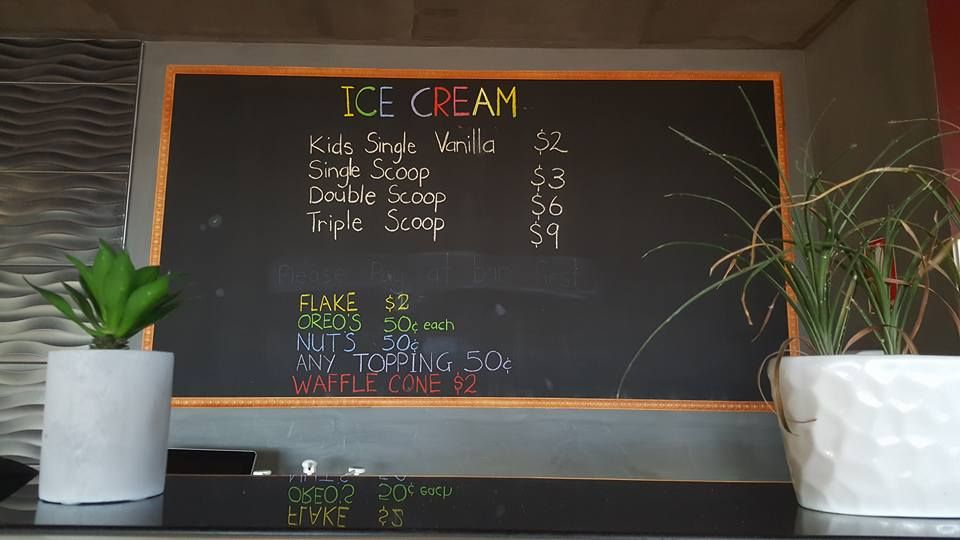 ICE CREAM
Kids Single Vanilla $2
Single Scoop $3
Double Scoop $6
Triple Scoop $9
Please Pay at bar first
FLAKE $2
OREO'S 50¢ each
NUT'S 50¢
ANY TOPPING 50¢
WAFFLE CONE $2